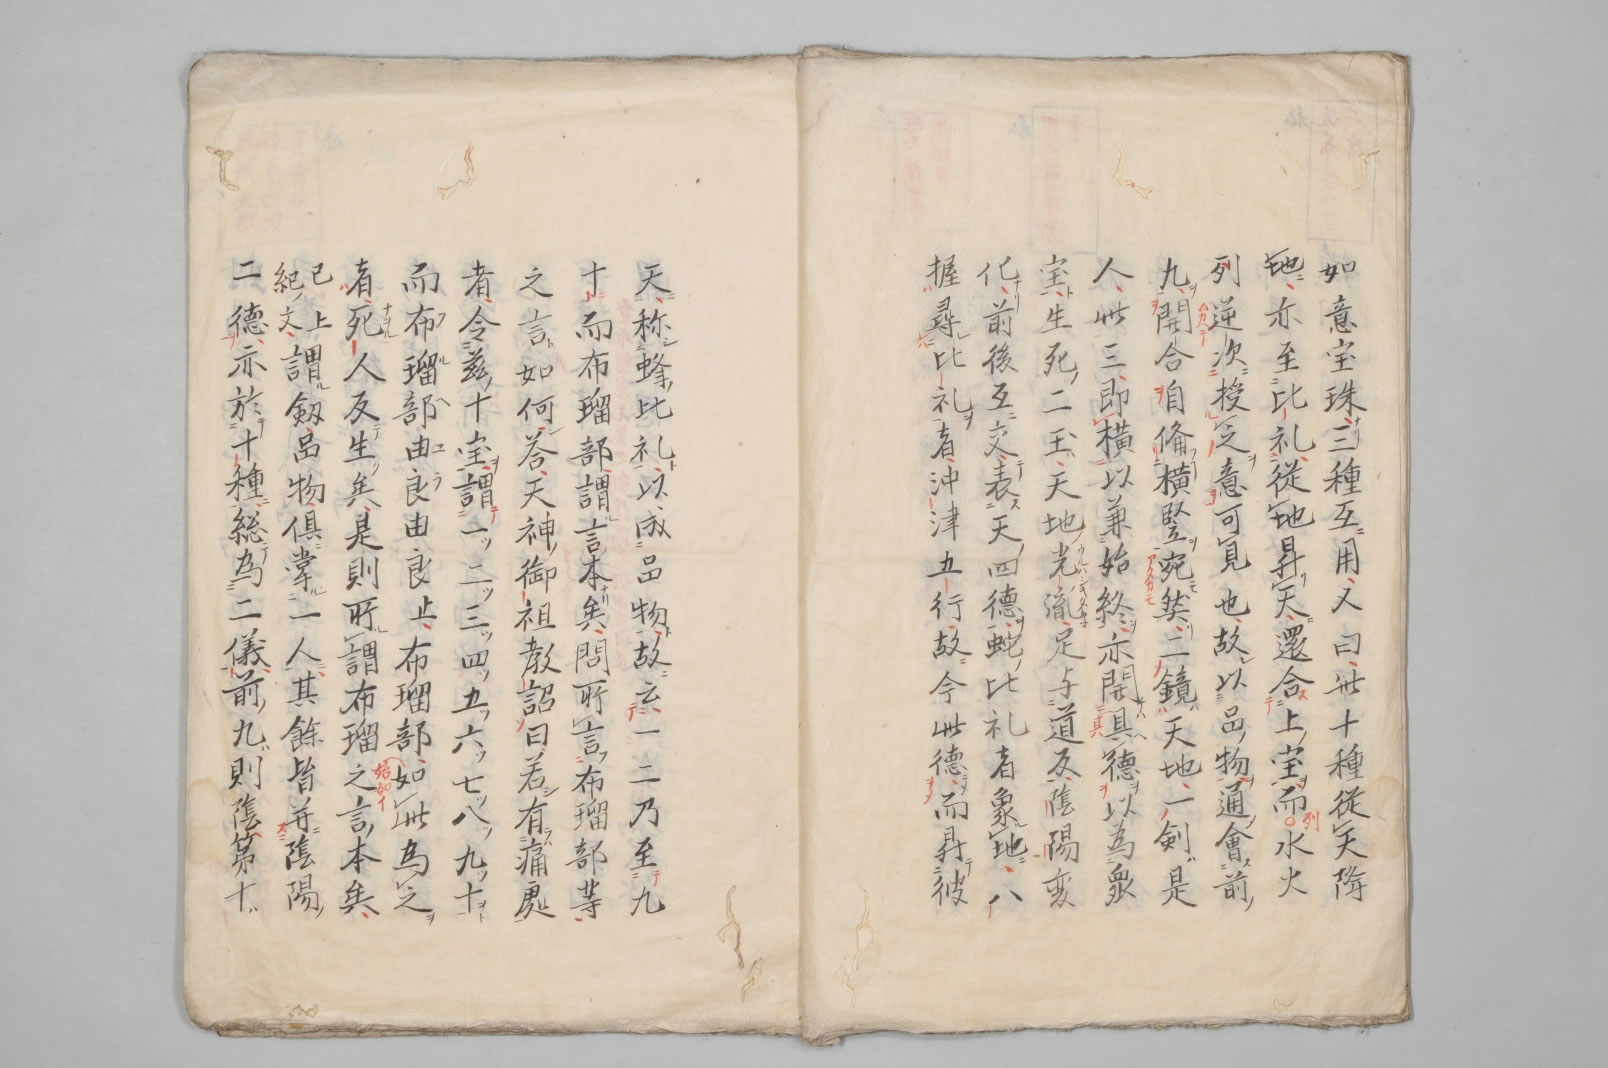 如意宝珠三種互用又曰此十種従天降
地亦至比礼従地昇天還合上宝而水火
列逆次授之意可見也故以品物通會前
九開合自俻横竪宛然二鏡天地一剣是
人此三即横以兼始終亦開具德以為衆
宝生死二玉天地光胤足与道反陰陽変
化前後互交表天四德蛇比礼者象地八
握尋比礼者沖津五行故今此德而昇彼
天称蜂比礼以成品物故云一二乃至九
十而布瑠部謂言本矣問所言布瑠部等
之言如何答天神御祖教詔曰若有痛處
者令茲十宝謂一二三四五六七八九十
而布瑠部由良由良止布瑠部如此為之
者死人反生矣是則所謂布瑠之言本矣
已上
紀文謂剱品物俱掌一人其餘皆并陰陽
二德亦於十種総為二儀前九則陰第十